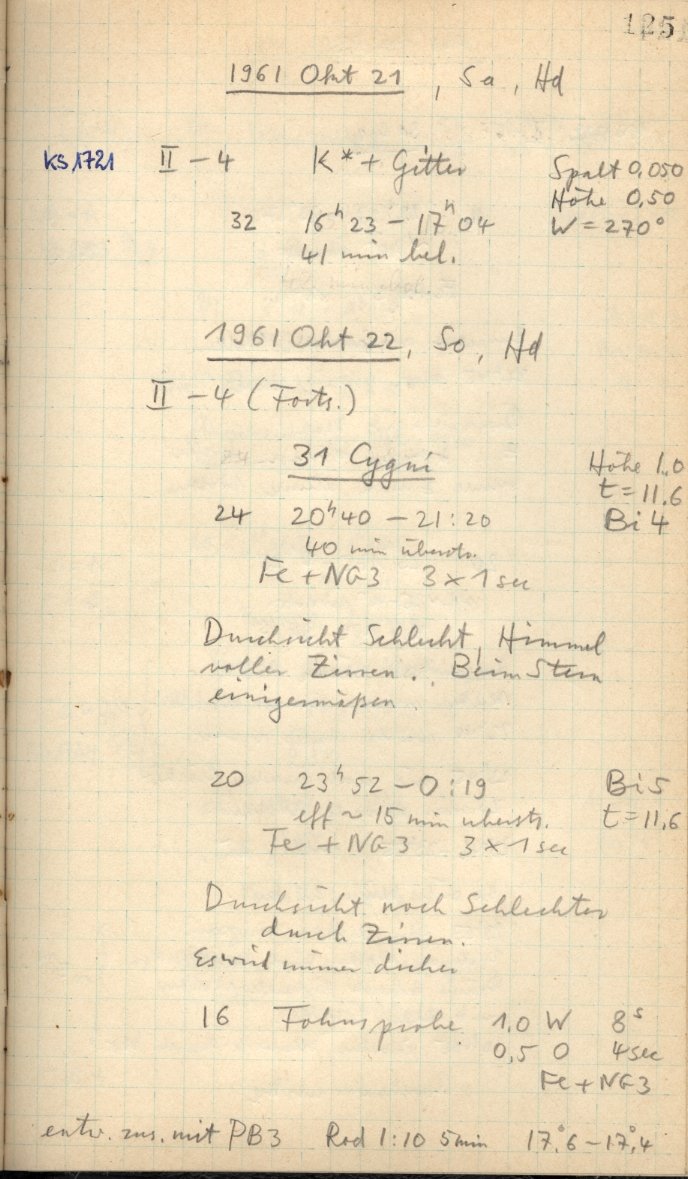 125
1961 Okt 21, Sa, Hd
KS 1721 II - 4 K* + Gitter Spalt 0,050
Höhe 0,50
32 16ʰ23 - 17ʰ04 W = 270°
41 min bel.
1961 Okt 22, So, Hd
II - 4 (Forts.)
31 Cygni Höhe 1,0
t = 11.6
24 20ʰ40 - 21:20 Bi 4
40 min überstr.
Fe + NG3 3 x 1 sec
Durchsicht Schlecht, Himmel
voller Zirren. Beim Stern
einigermaßen
20 23ʰ52 - 0:19 Bi 5
eff ~ 15 min überstr. t = 11,6
Fe + NG3 3 x 1 sec
Durchsicht noch Schlechter
durch Zirren.
Es wird immer dicher
16 1,0 W 8ˢ
0,5 O 4sec
Fe + NG3
entw. zus. mit PB3 Rod 1:10 5min 17°,6 - 17°,4